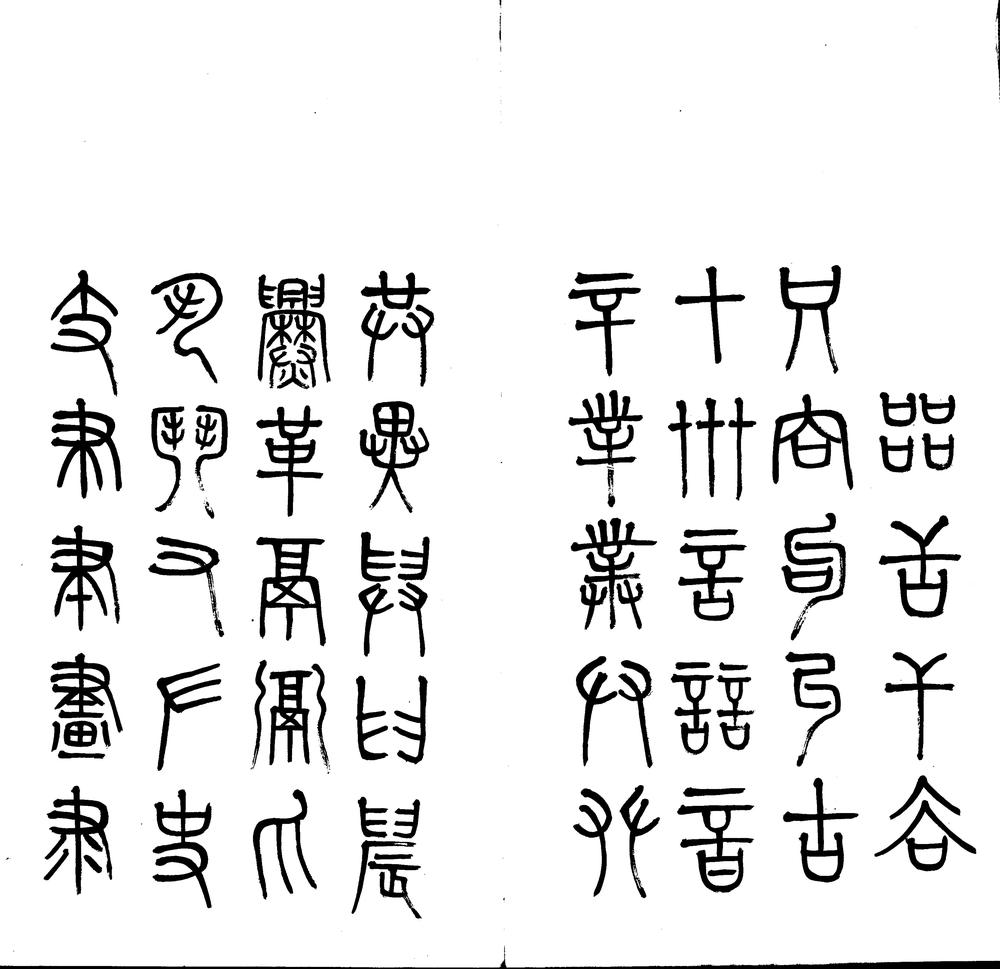 㗊舌干𧮫
只㕯句丩古
十卅言誩音
䇂丵菐廾𠬜
共異舁𦥑䢅
爨革鬲䰜爪
丮鬥又𠂇史
支𦘒聿畫隶